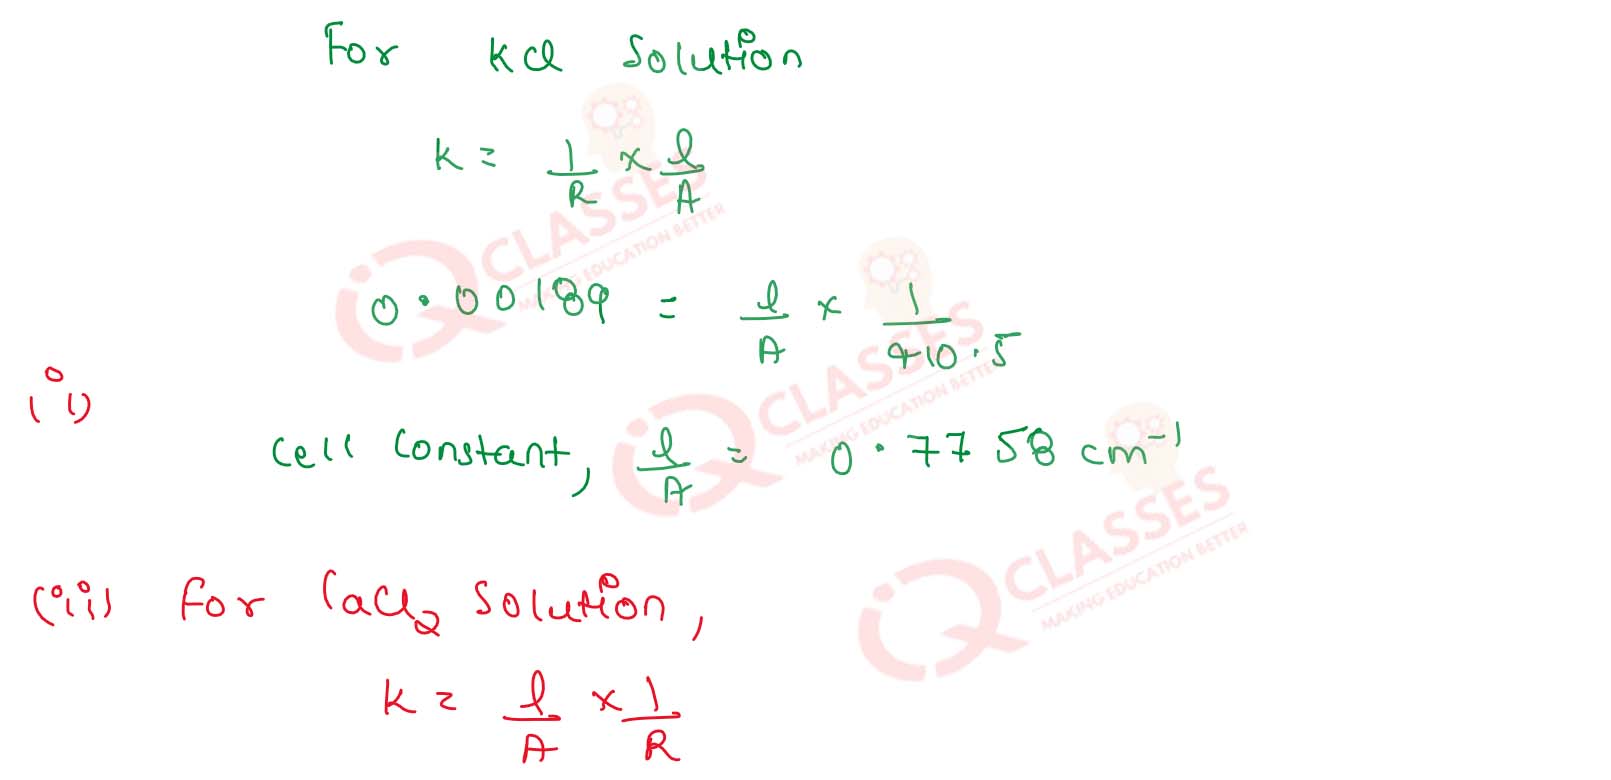 For KCl Solution
K = 1/R × l/A
0.00189 = l/A × 1/410.5
(i)
Cell Constant, l/A = 0.7758 cm⁻¹
(ii) For CaCl₂ Solution,
K = l/A × 1/R
iQ CLASSES
MAKING EDUCATION BETTER
iQ CLASSES
MAKING EDUCATION BETTER
iQ CLASSES
MAKING EDUCATION BETTER